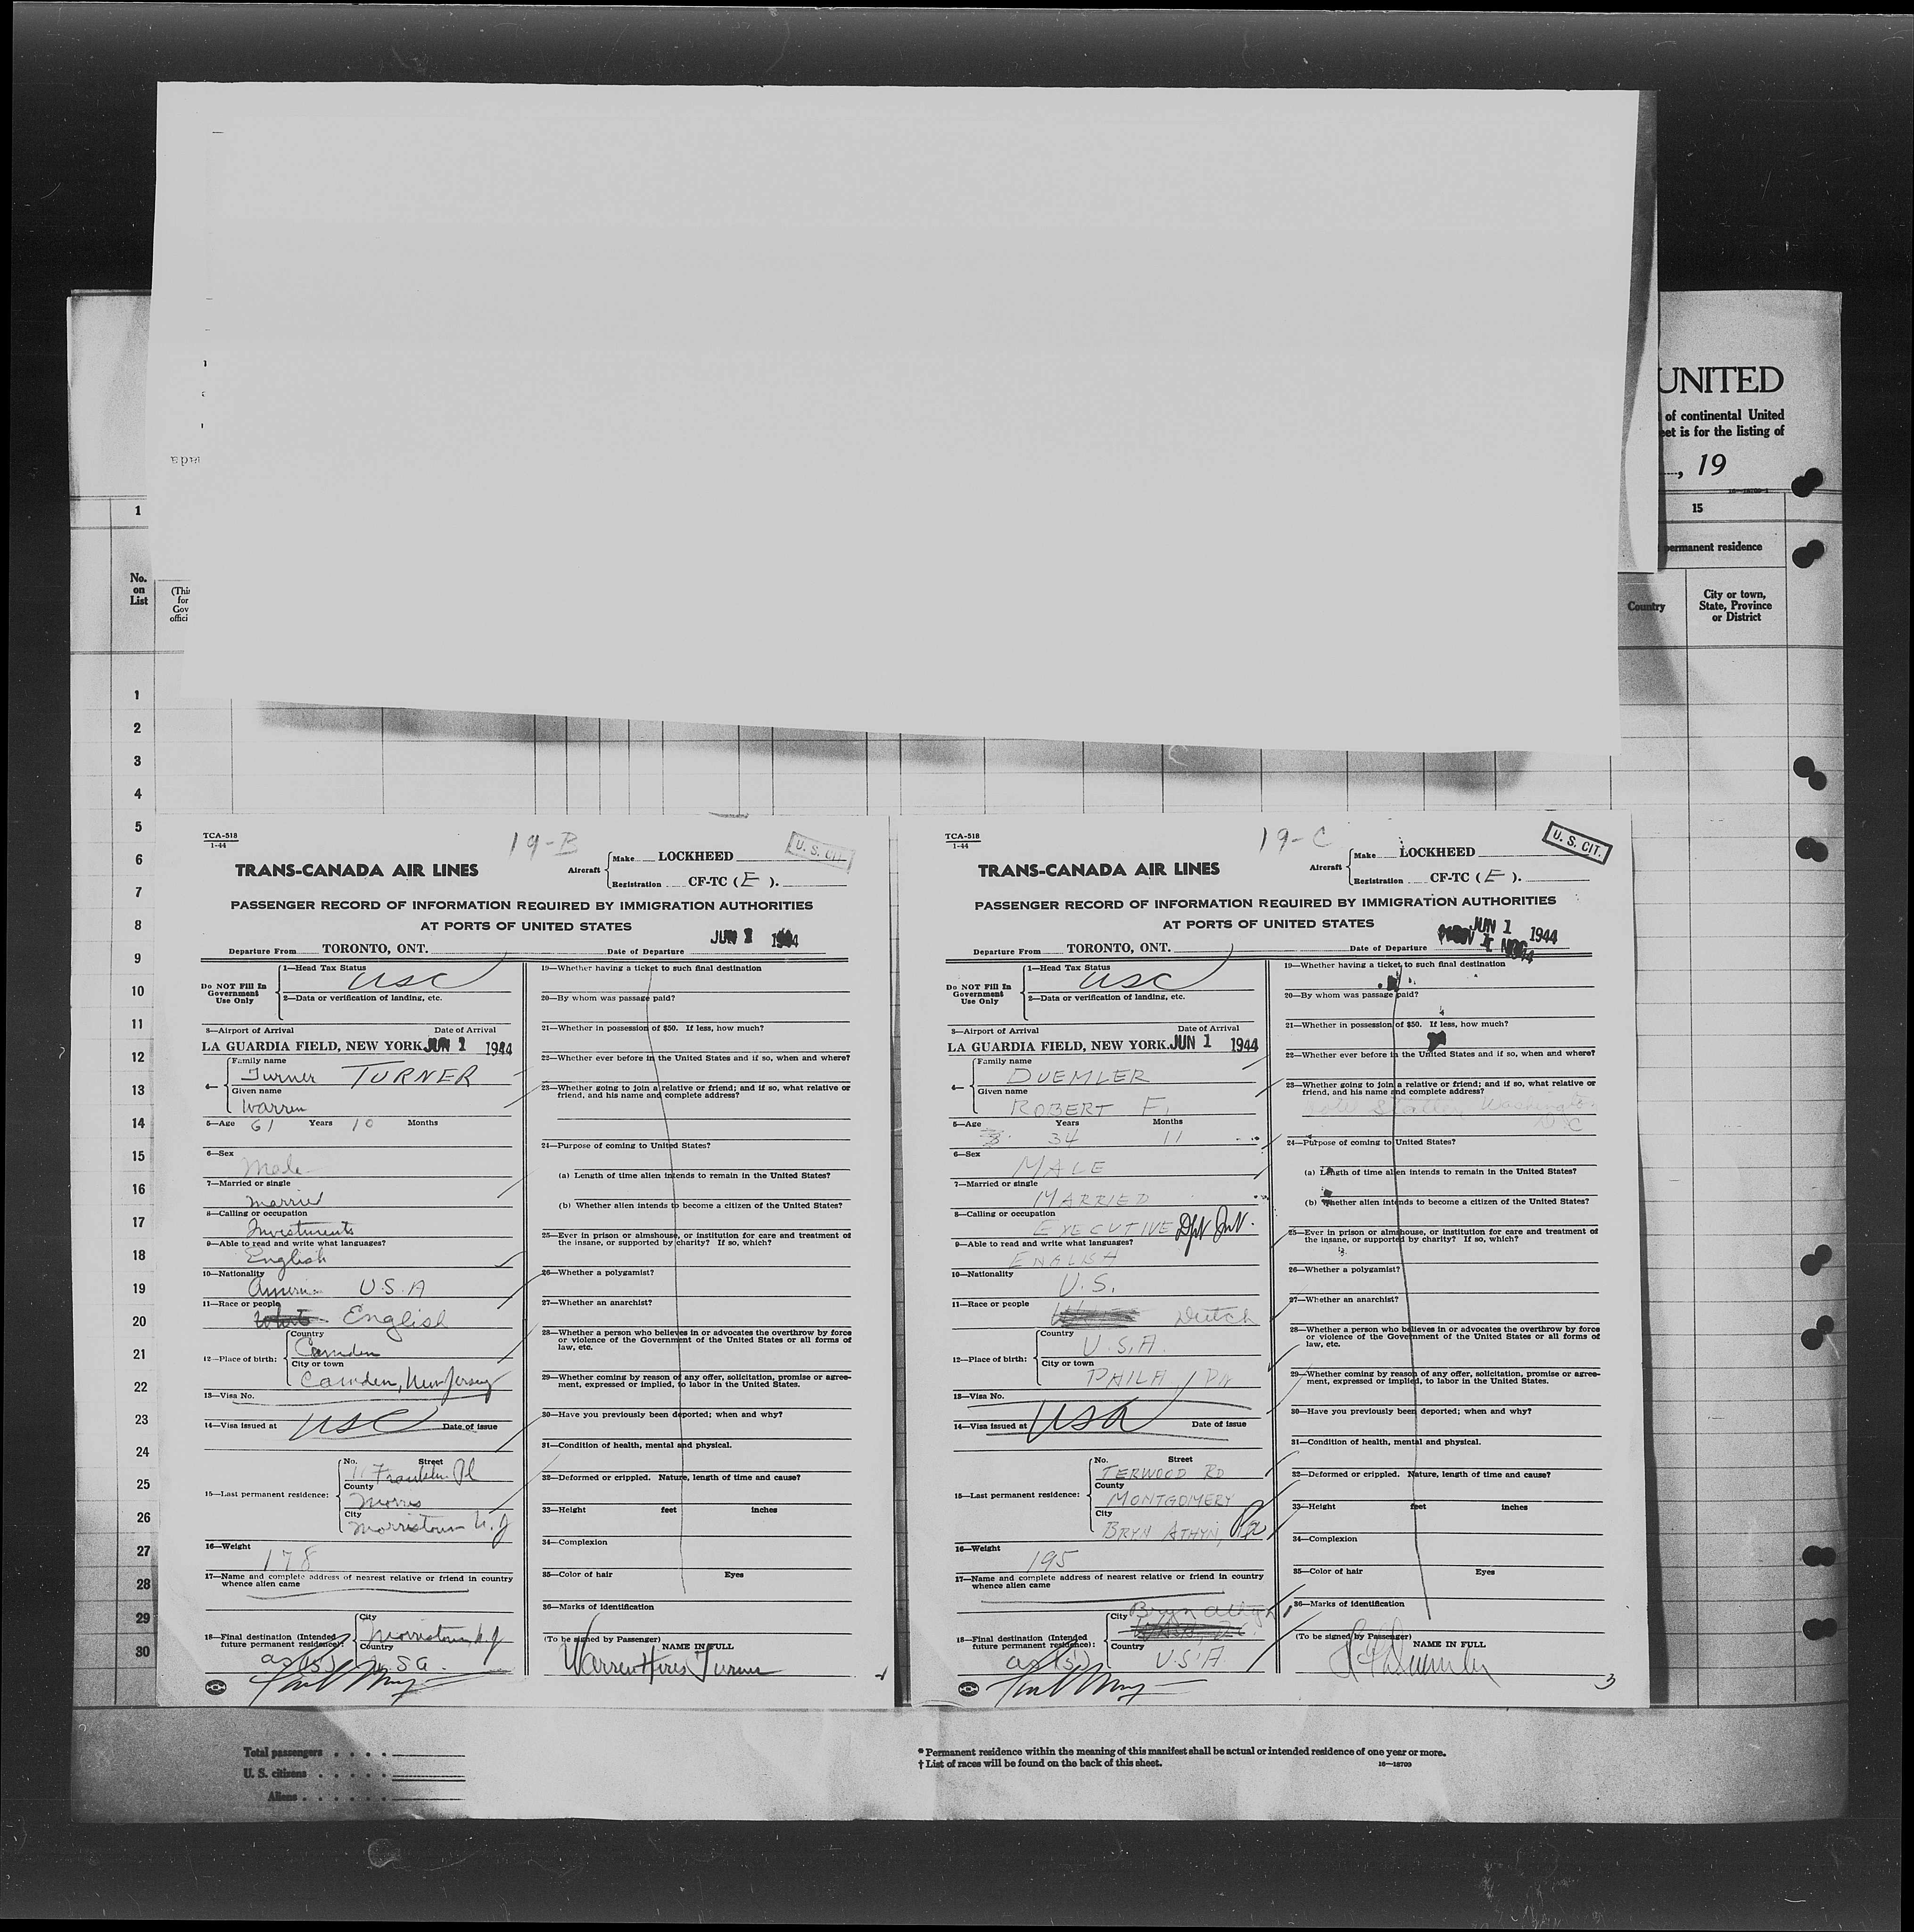 UNITED
of continental United
is for the listing of
, 19
1
15
permanent residence
No.
on
List
(This
for
Gov
offici
Country
City or town,
State, Province
or District
1
2
3
4
5
6
7
8
9
10
11
12
13
14
15
16
17
18
19
20
21
22
23
24
25
26
27
28
29
30
TCA-518
1-44
19-B
U. S. CIT.
TRANS-CANADA AIR LINES
Aircraft
Make LOCKHEED
Registration CF-TC ( E ).
PASSENGER RECORD OF INFORMATION REQUIRED BY IMMIGRATION AUTHORITIES
AT PORTS OF UNITED STATES
Departure From TORONTO, ONT. Date of Departure JUN 1 1944
Do NOT Fill In
Government
Use Only
1—Head Tax Status
USC
2—Data or verification of landing, etc.
3—Airport of Arrival Date of Arrival
LA GUARDIA FIELD, NEW YORK. JUN 1 1944
4—
Family name
Turner TURNER
Given name
Warren
5—Age 61 Years 10 Months
6—Sex
Male
7—Married or single
Married
8—Calling or occupation
Investments
9—Able to read and write what languages?
English
10—Nationality
U.S.A
11—Race or people
White English
12—Place of birth:
Country
Camden
City or town
Camden, New Jersey
13—Visa No.
14—Visa issued at USC Date of issue
15—Last permanent residence:
No. Street
11 Franklin Pl
County
Morris
City
Morristown N.J
16—Weight
178
17—Name and complete address of nearest relative or friend in country
whence alien came
18—Final destination (Intended
future permanent residence):
City
Morristown N.J
Country
as (15) U.S.A.
19—Whether having a ticket to such final destination
20—By whom was passage paid?
21—Whether in possession of $50. If less, how much?
22—Whether ever before in the United States and if so, when and where?
23—Whether going to join a relative or friend; and if so, what relative or
friend, and his name and complete address?
24—Purpose of coming to United States?
(a) Length of time alien intends to remain in the United States?
(b) Whether alien intends to become a citizen of the United States?
25—Ever in prison or almshouse, or institution for care and treatment of
the insane, or supported by charity? If so, which?
26—Whether a polygamist?
27—Whether an anarchist?
28—Whether a person who believes in or advocates the overthrow by force
or violence of the Government of the United States or all forms of
law, etc.
29—Whether coming by reason of any offer, solicitation, promise or agree-
ment, expressed or implied, to labor in the United States.
30—Have you previously been deported; when and why?
31—Condition of health, mental and physical.
32—Deformed or crippled. Nature, length of time and cause?
33—Height feet inches
34—Complexion
35—Color of hair Eyes
36—Marks of identification
(To be signed by Passenger) NAME IN FULL
Warren Hires Turner
TCA-518
1-44
19-C
U. S. CIT.
TRANS-CANADA AIR LINES
Aircraft
Make LOCKHEED
Registration CF-TC ( E ).
PASSENGER RECORD OF INFORMATION REQUIRED BY IMMIGRATION AUTHORITIES
AT PORTS OF UNITED STATES
Departure From TORONTO, ONT. Date of Departure JUN 1 1944
Do NOT Fill In
Government
Use Only
1—Head Tax Status
USC
2—Data or verification of landing, etc.
3—Airport of Arrival Date of Arrival
LA GUARDIA FIELD, NEW YORK. JUN 1 1944
4—
Family name
DUEMLER
Given name
ROBERT F.
5—Age Years Months
34 11
6—Sex
MALE
7—Married or single
MARRIED
8—Calling or occupation
EXECUTIVE
9—Able to read and write what languages?
ENGLISH
10—Nationality
U.S.
11—Race or people
Dutch
12—Place of birth:
Country
U.S.A.
City or town
PHILA, PA
13—Visa No.
14—Visa issued at USA Date of issue
15—Last permanent residence:
No. Street
TERWOOD RD
County
MONTGOMERY
City
BRYN ATHYN, Pa
16—Weight
195
17—Name and complete address of nearest relative or friend in country
whence alien came
18—Final destination (Intended
future permanent residence):
City
Bryn Athyn
Country
as (15) U.S.A.
19—Whether having a ticket to such final destination
20—By whom was passage paid?
21—Whether in possession of $50. If less, how much?
22—Whether ever before in the United States and if so, when and where?
23—Whether going to join a relative or friend; and if so, what relative or
friend, and his name and complete address?
Statler, Washington
D.C
24—Purpose of coming to United States?
(a) Length of time alien intends to remain in the United States?
(b) Whether alien intends to become a citizen of the United States?
25—Ever in prison or almshouse, or institution for care and treatment of
the insane, or supported by charity? If so, which?
26—Whether a polygamist?
27—Whether an anarchist?
28—Whether a person who believes in or advocates the overthrow by force
or violence of the Government of the United States or all forms of
law, etc.
29—Whether coming by reason of any offer, solicitation, promise or agree-
ment, expressed or implied, to labor in the United States.
30—Have you previously been deported; when and why?
31—Condition of health, mental and physical.
32—Deformed or crippled. Nature, length of time and cause?
33—Height feet inches
34—Complexion
35—Color of hair Eyes
36—Marks of identification
(To be signed by Passenger) NAME IN FULL
3
Total passengers
U. S. citizens
Aliens
* Permanent residence within the meaning of this manifest shall be actual or intended residence of one year or more.
† List of races will be found on the back of this sheet.
16—18709